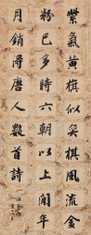 紫氣黄旗似奕棋風流金
粉已多時六朝以上閒年
月銷得唐人數首詩